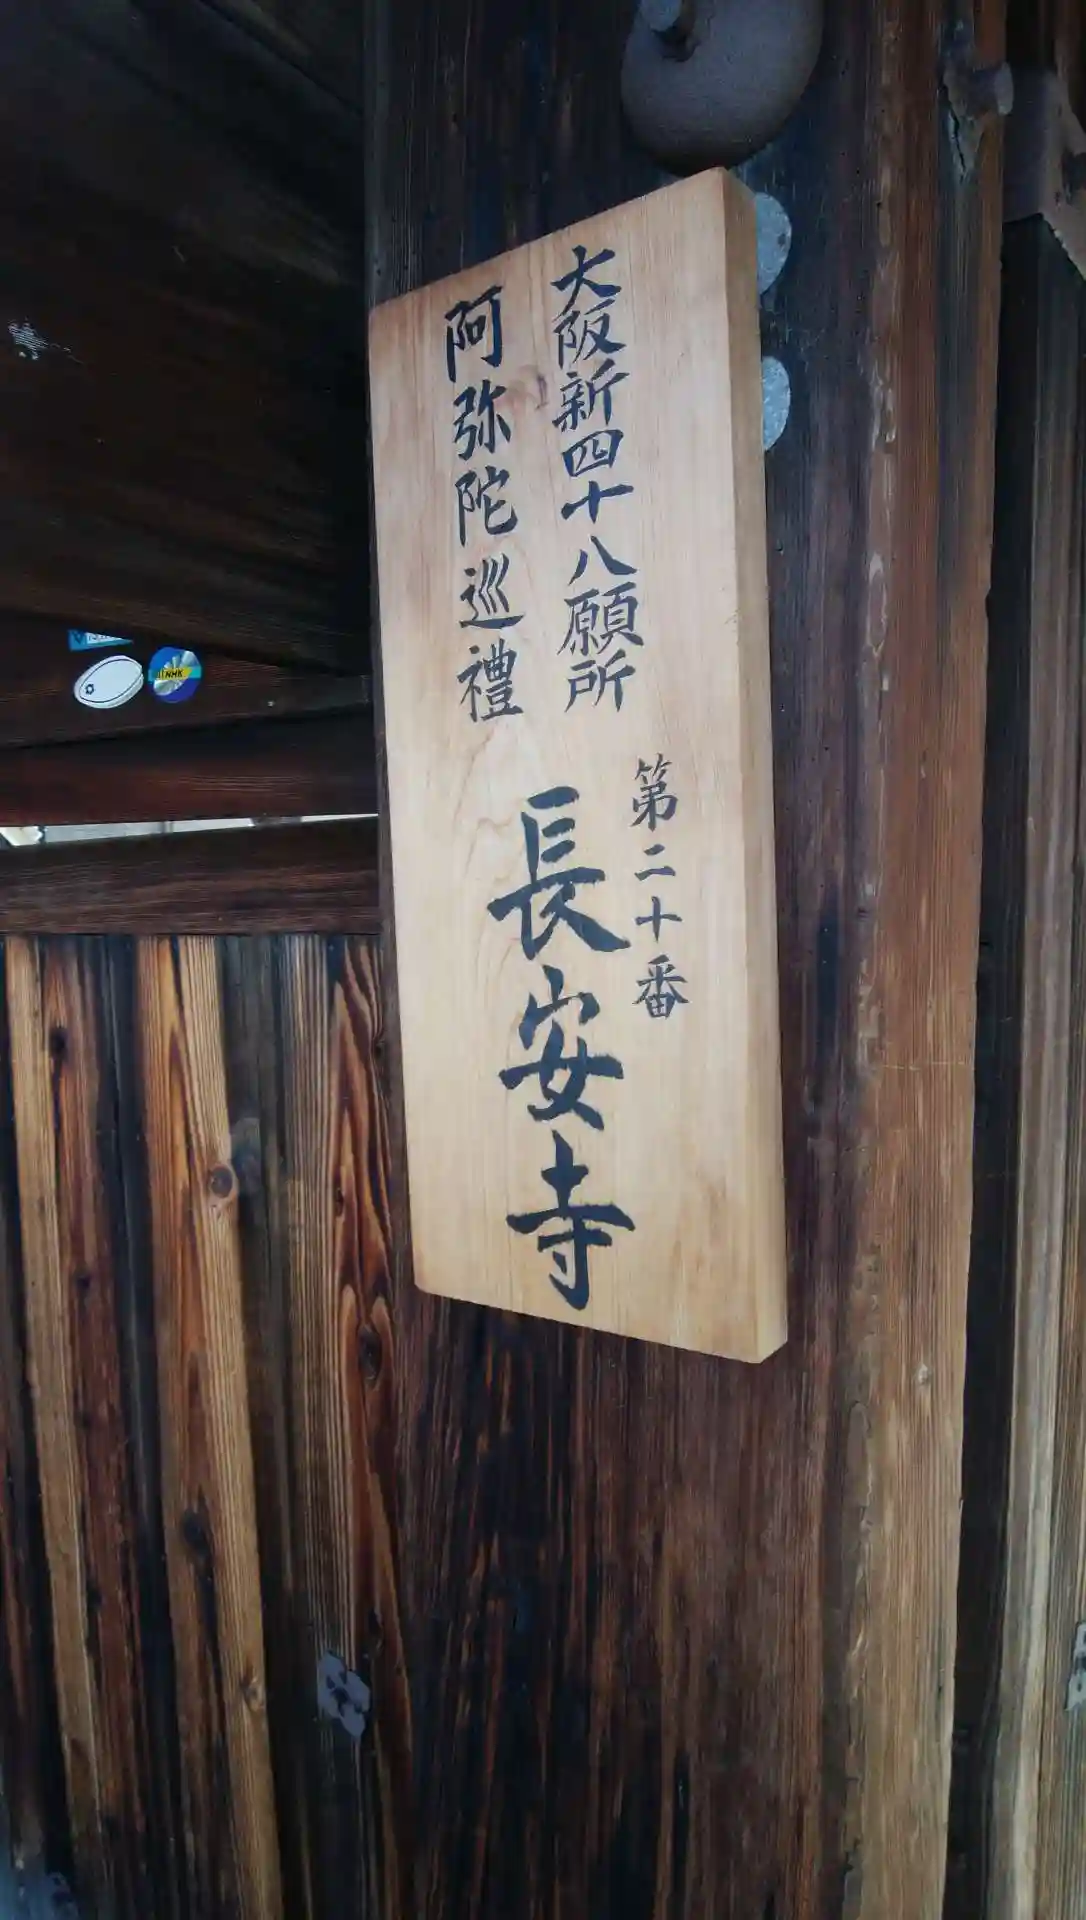 大阪新四十八願所
阿弥陀巡禮
第二十番
長安寺
NHK